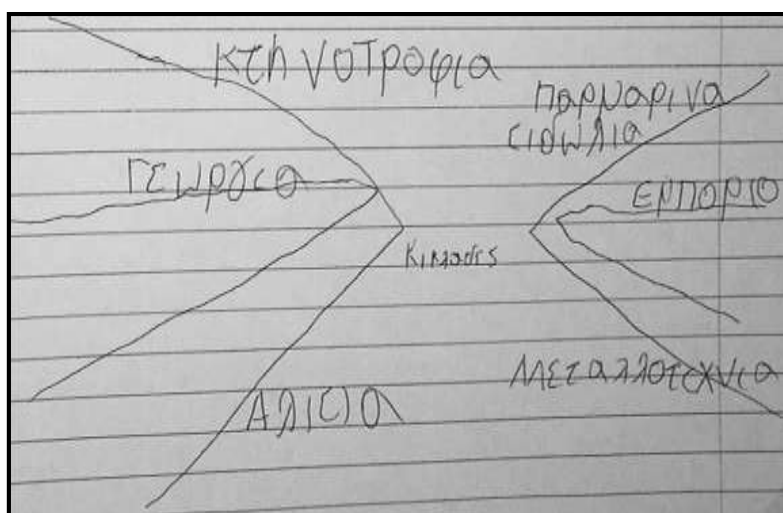 κτηνοτροφια
παρμαρινα
ειδωλια
Γεωργια
ΕΜΠΟΡΙΟ
Αλιεια
Μεταλλοτεχνια